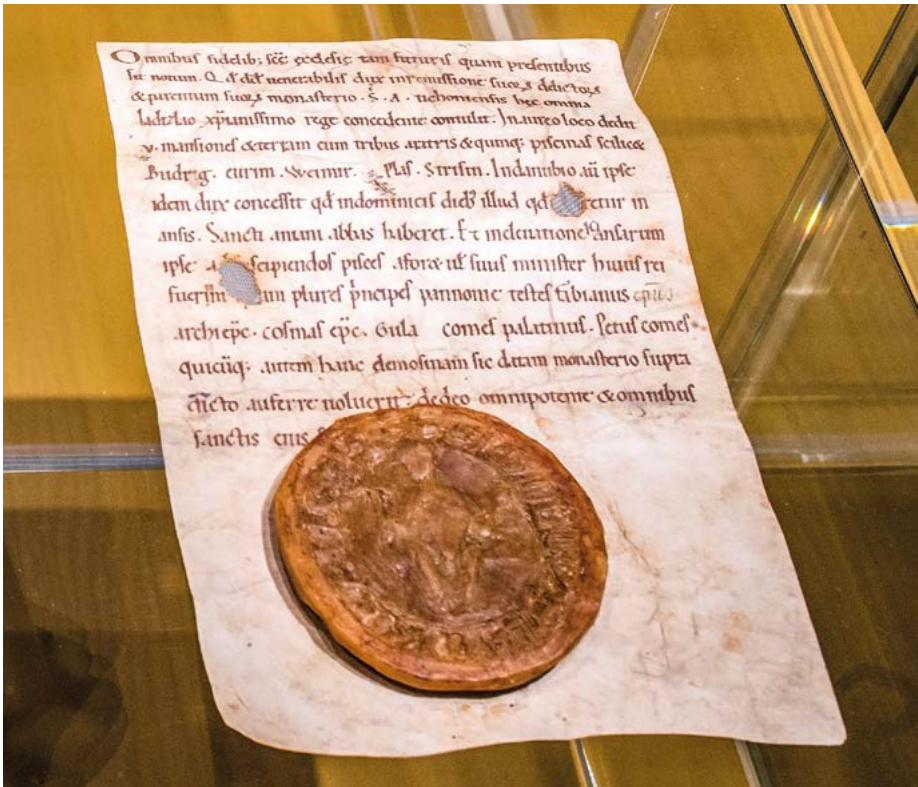 Omnibus fidelib; scē ęcclesię tam futuris quam presentibus
sit notum. Q d dd uenerabilis dux inremissione suoꝝ delictoꝝ
& parentum suoꝝ monasterio . S . A . uehoniensis hęc omnia
ladizlao xp̄ianissimo rege concedente contulit. In aureo loco dedit
v. mansiones & terram cum tribus aratris & quinq; piscinas scilicet
Budrig. curim. Weimir. Plaſ. Striſin. Indanubio aū ipse
idem dux concessit qd indominicis dieb illud qd retur in
ansis. Sancti aniani abbas haberet. Et in eleuatione ansarum
ipse a scipiendos pisces aforas uł suus minister huius rei
fuer um plures p̄ncipes pannonie testes Fibianus ep̄us
archiep̄c. cosmas ep̄c. Gula comes palatinus. Petrus comes.
quicūq; autem hanc elemosinam sic datam monasterio supra
dicto auferre uoluerit. a deo omnipotente & omnibus
sanctis eius